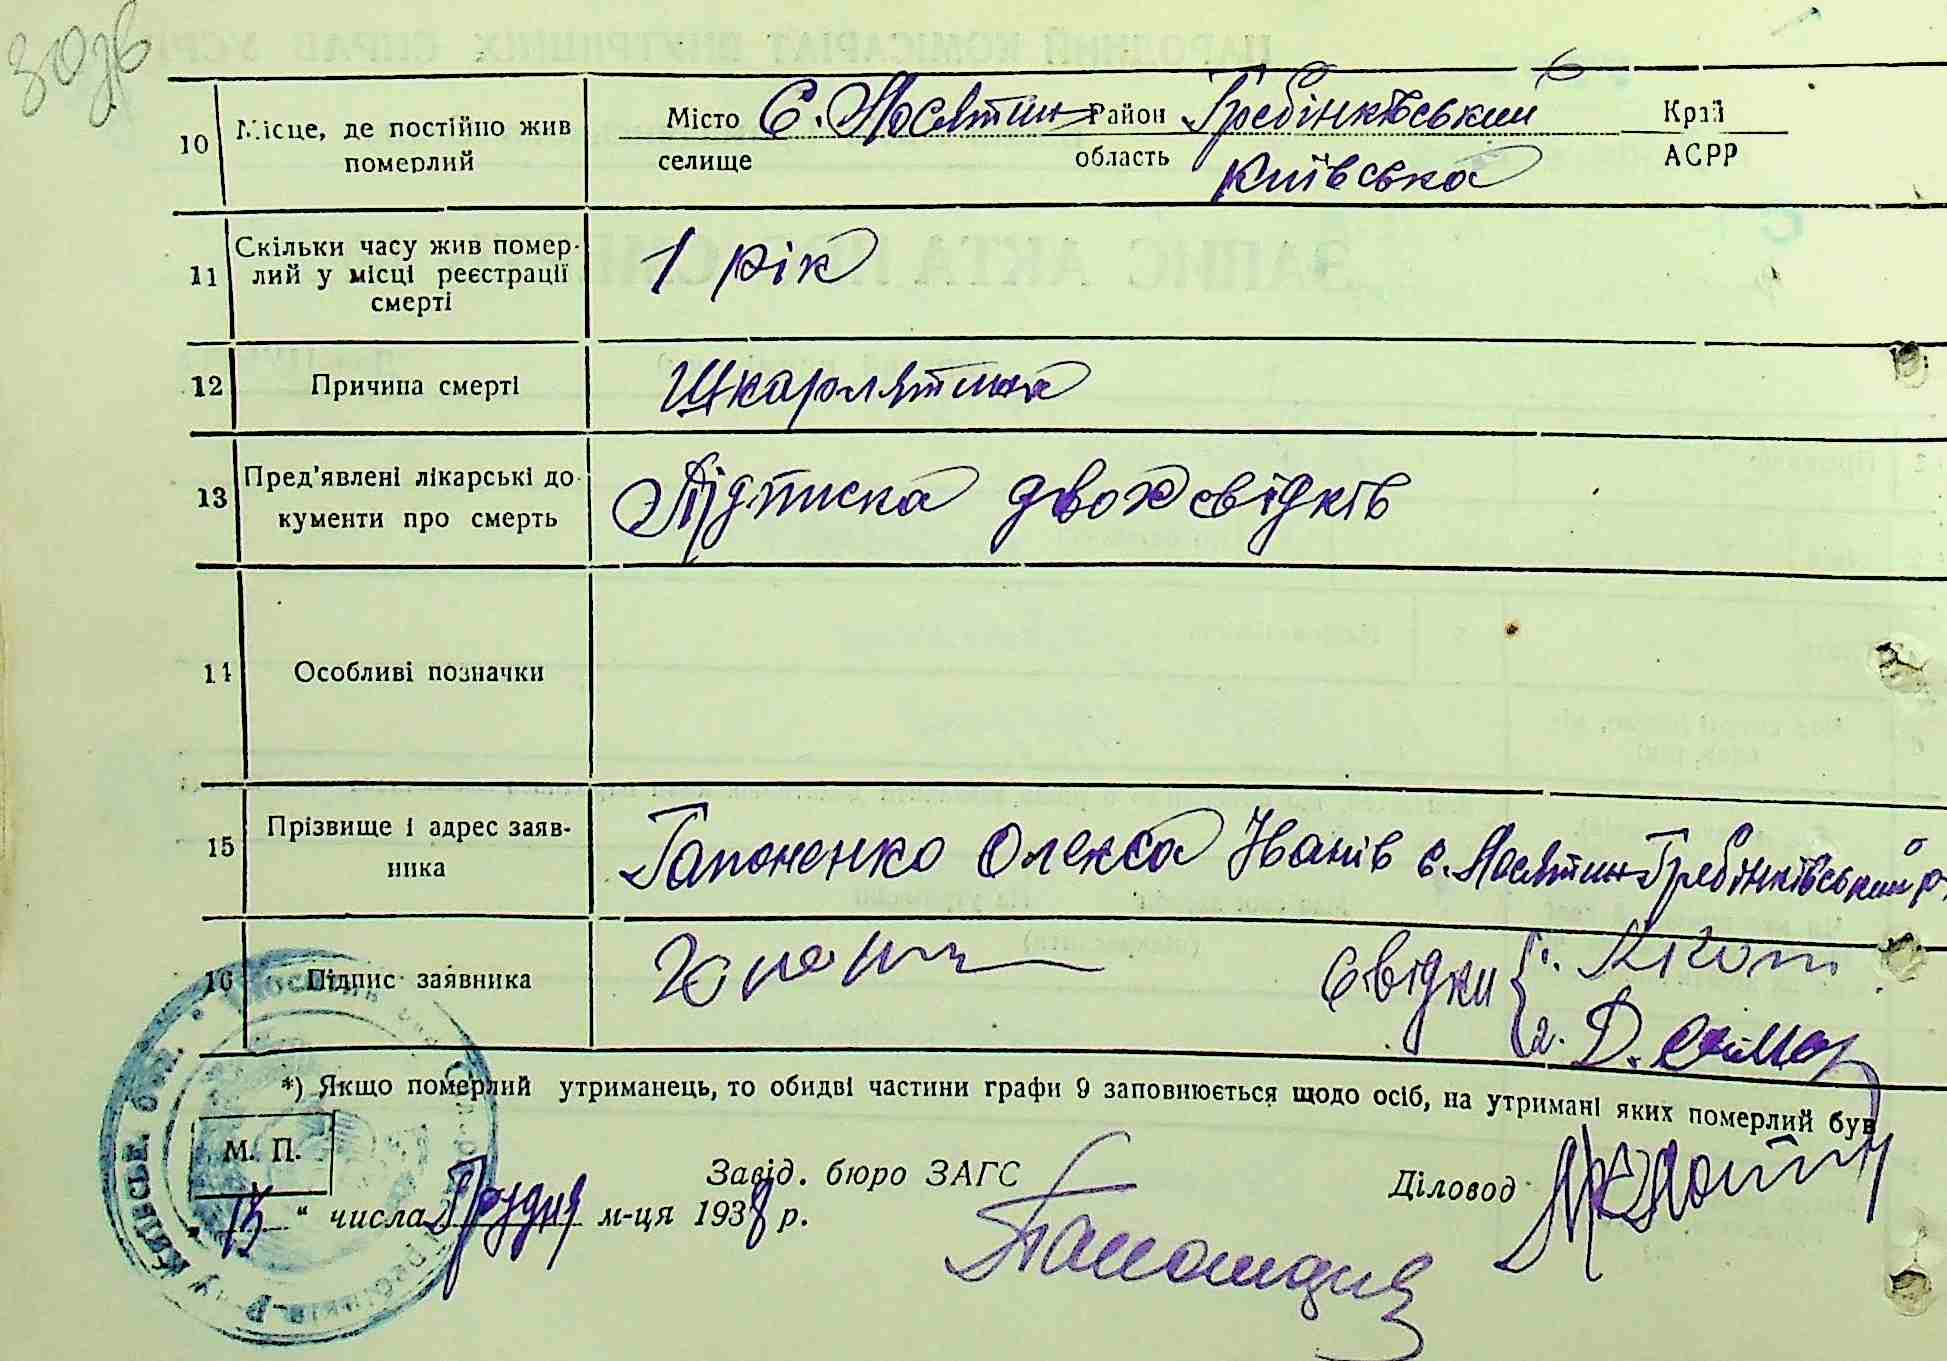 10 Місце, де постійно жив Місто с. Лосятин Район Гребінківський Край
померлий селище область Київська АСРР
11 Скільки часу жив помер- 1 рік
лий у місці реєстрації
смерті
12 Причина смерті Шкарлятина
13 Пред'явлені лікарські до- Підписка двох свідків
кументи про смерть
14 Особливі позначки
15 Прізвище і адрес заяв- Гапоненко Олекса Іванів с. Лосятин Гребінківський р.
ника
16 Підпис заявника свідки 1.
2. Д.
*) Якщо померлий утриманець, то обидві частини графи 9 заповнюється щодо осіб, на утримані яких померлий був
М. П. Завід. бюро ЗАГС Діловод
„ 13 " числа Грудня м-ця 1938 р.
КИЇВСЬК. ОБЛ.